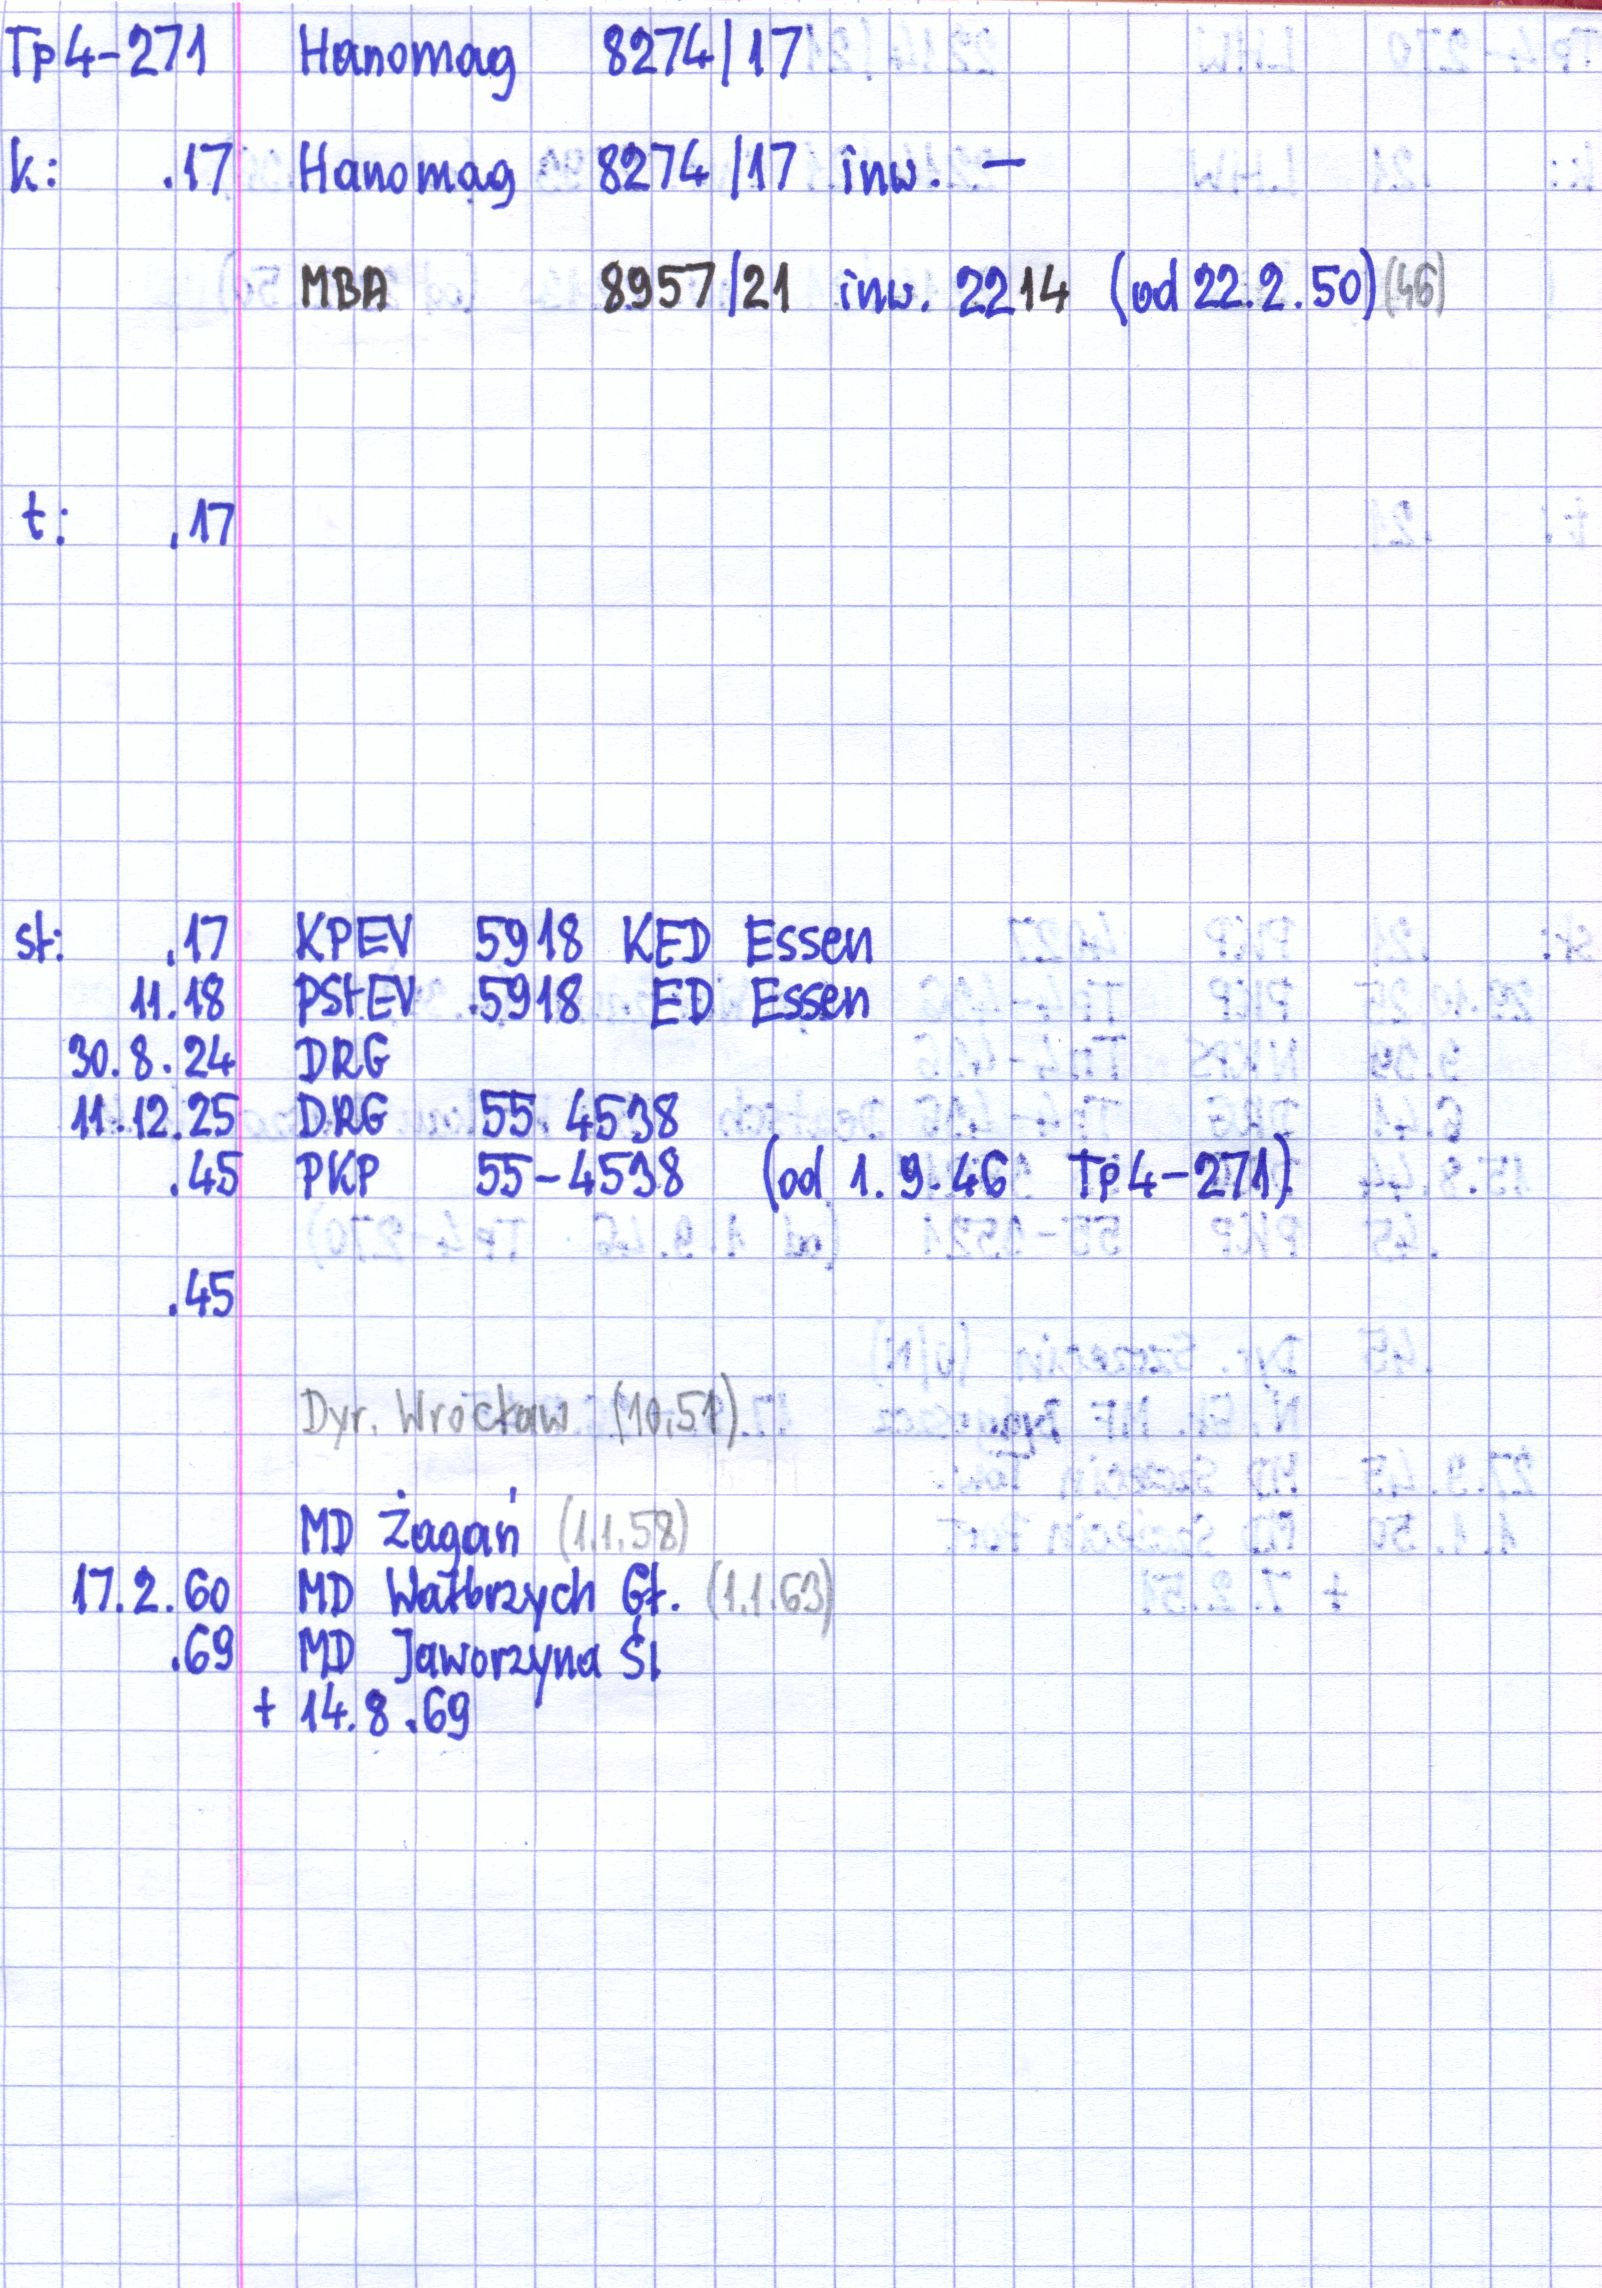 Tp4-271 Hanomag 8274/17
k: .17 Hanomag 8274/17 inw. —
MBA 8957/21 inw. 2214 (od 22.2.50) (46)
t: .17
st: .17 KPEV 5918 KED Essen
11.18 PStEV 5918 ED Essen
30.8.24 DRG
11.12.25 DRG 55 4538
.45 PKP 55-4538 (od 1.9.46 Tp4-271)
.45
Dyr. Wrocław (10.51)
MD Żagań (1.1.58)
17.2.60 MD Wałbrzych Gł. (1.1.63)
.69 MD Jaworzyna Śl
+ 14.8.69